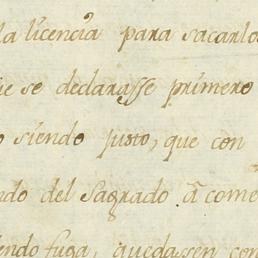 la licencia para sacarlos
ue se declarasse primero
o siendo justo, que con
ndo del Sagrado â come
iendo fuga, quedassen con